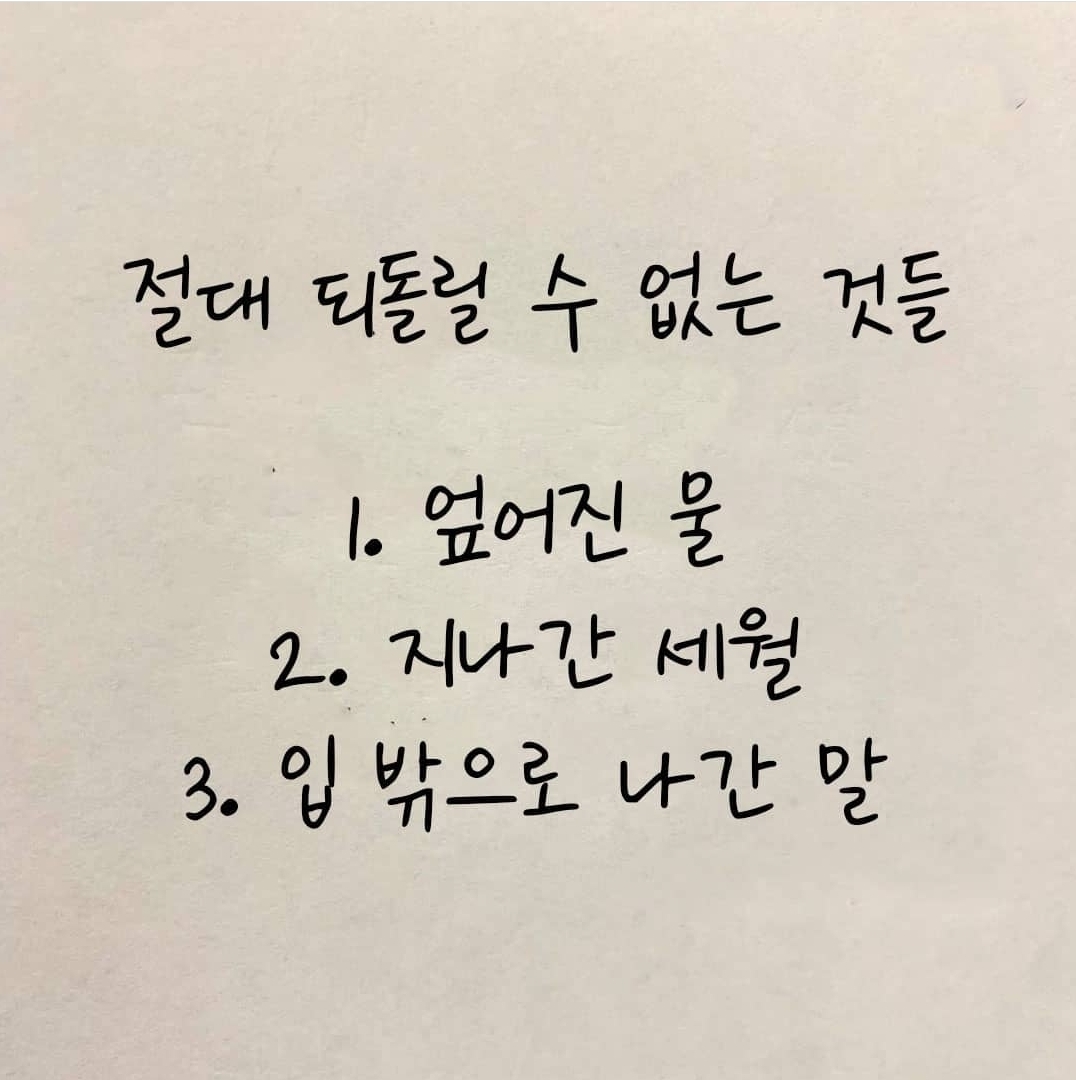 절대 되돌릴 수 없는 것들
1. 엎어진 물
2. 지나간 세월
3. 입 밖으로 나간 말